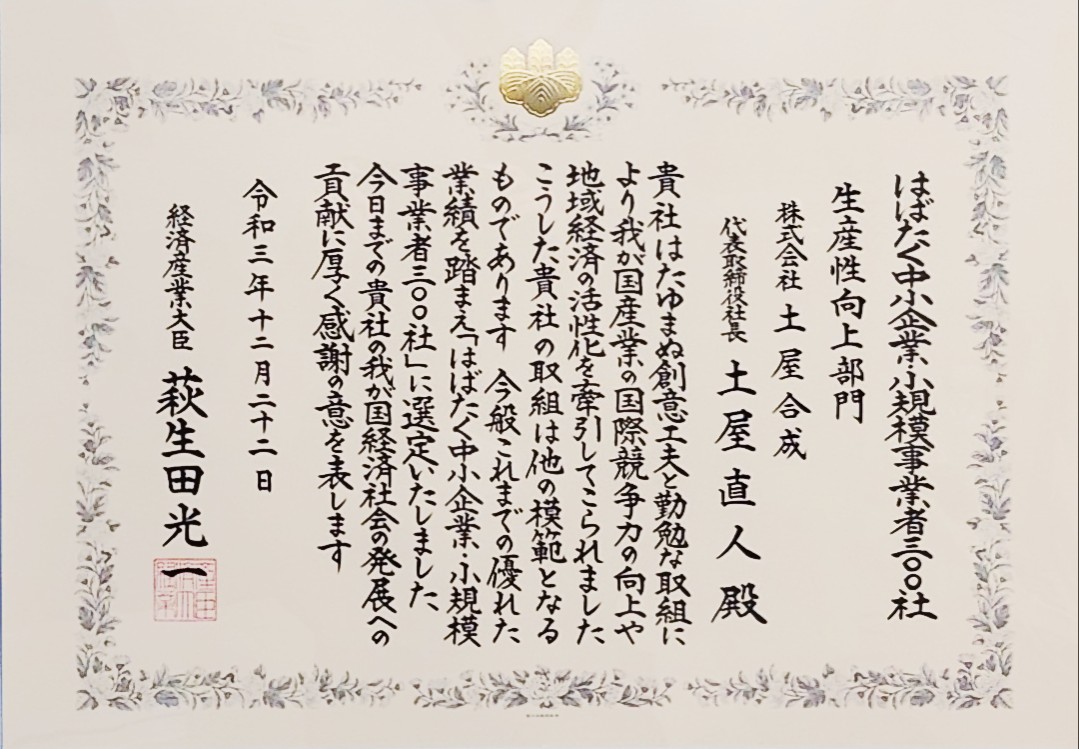 はばたく中小企業・小規模事業者三〇〇社
生産性向上部門
株式会社 土屋合成
代表取締役社長 土屋直人殿
貴社はたゆまぬ創意工夫と勤勉な取組に
より我が国産業の国際競争力の向上や
地域経済の活性化を牽引してこられました
こうした貴社の取組は他の模範となる
ものであります 今般これまでの優れた
業績を踏まえ「はばたく中小企業・小規模
事業者三〇〇社」に選定いたしました
今日までの貴社の我が国経済社会の発展への
貢献に厚く感謝の意を表します
令和三年十二月二十二日
経済産業大臣 萩生田光一